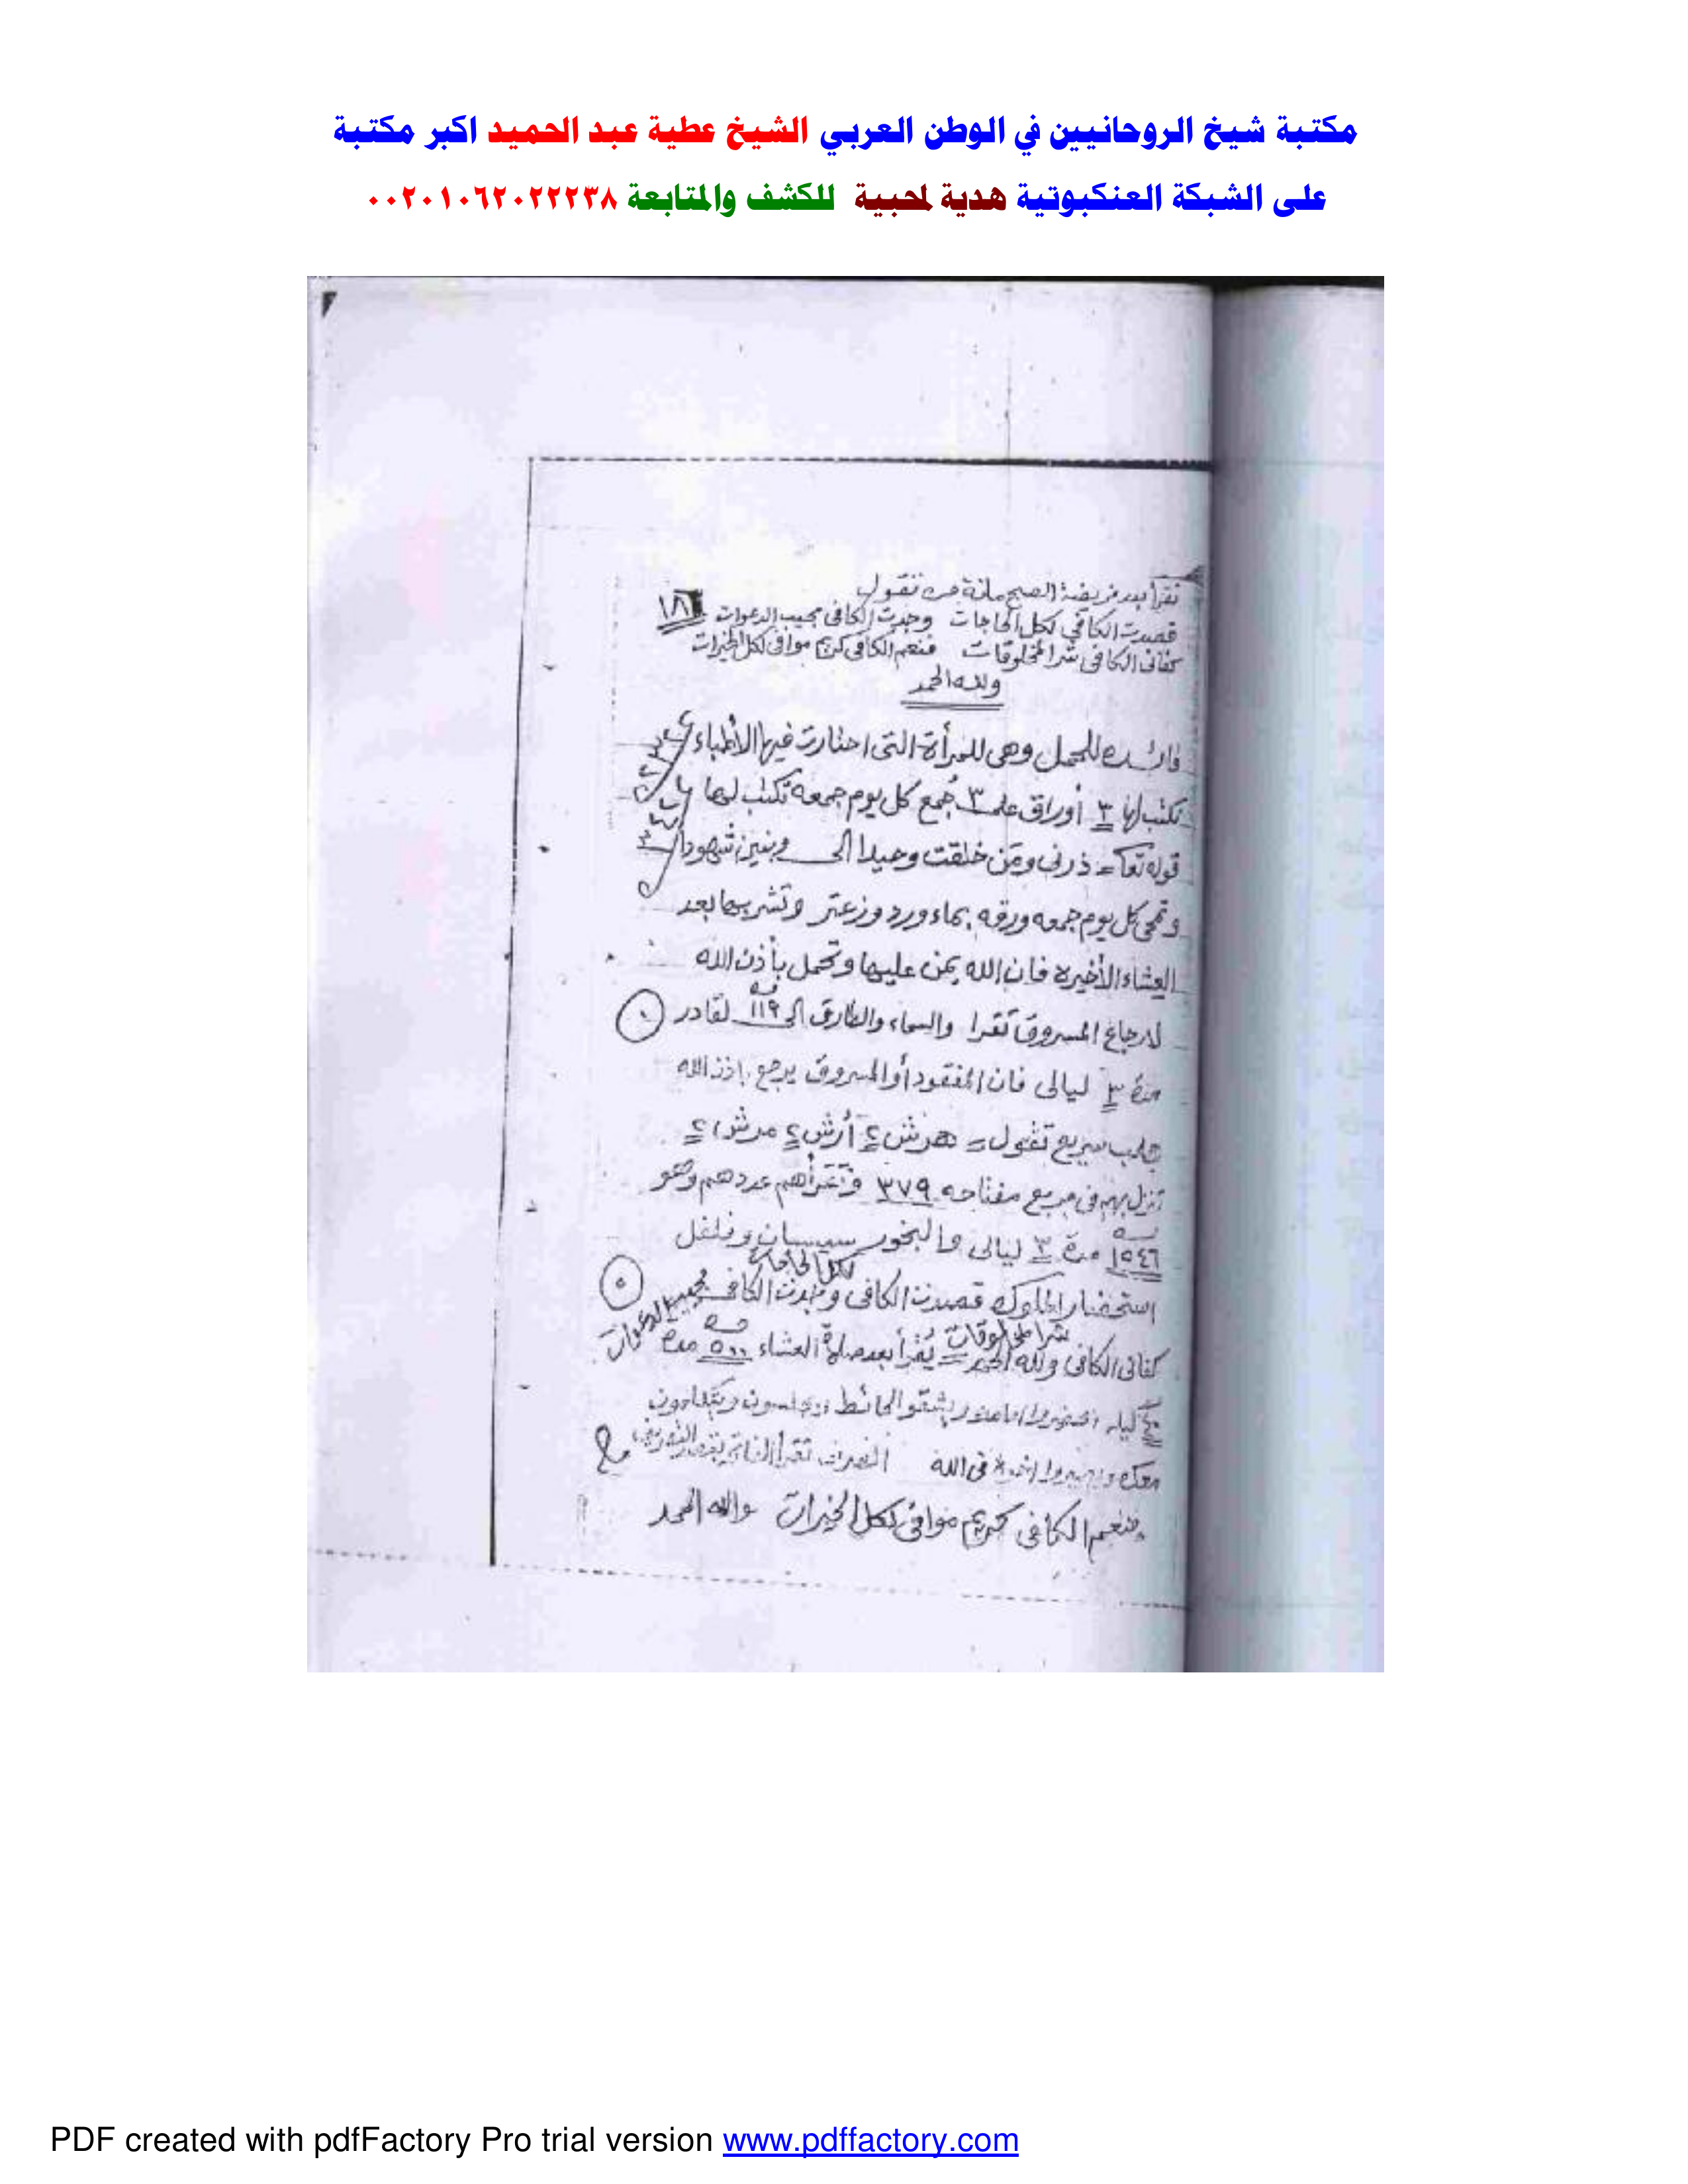 مكتبة شيخ الروحانيين في الوطن العربي الشيخ عطية عبد الحميد اكبر مكتبة
على الشبكة العنكبوتية هدية لمحبية للكشف والمتابعة ٠٠٢٠١٠٦٢٠٢٢٢٣٨
تقرأ بعد فريضة الصبح مائة مرة تقول
قصدت الكافي لكل الحاجات وجدت الكافى مجيب الدعوات ١٨
كفانى الكافى شر المخلوقات فنعم الكافى كريم موافى لكل الخيرات
ولله الحمد
فائده للحمل وهى للمرأة التى احتارت فيها الأطباء
تكتب لها ٣ أوراق على ٣ جُمع كل يوم جمعه تكتب لها
قوله تعا = ذرنى ومَن خلقت وحيدا الى وبنين شهودا
وتمحى كل يوم جمعه ورقه بماء ورد وزعتر وتشربها بعد
العشاء الأخيرة فان الله يمن عليها وتحمل بأذن الله
لارجاع المسروق تقرا والسماء والطارق الى لقادر ١١٩
مدة ٣ ليالى فان المفقود أو المسروق يرجع باذن الله
جلب سريع تقول = هرش ٢ أرش ٢ مرش ٢
تنزل بهم فى مربع مفتاحه ٣٧٩ وتقرأهم عددهم وهو
١٥٤٦ مدة ٣ ليالى والبخور سيسبان وفلفل
استحضار الملوك قصدت الكافى وجدت الكافى لكل الحاجات مجيب الدعوات ٥
كفانى الكافى شر المخلوقات ولله الحمد = يُقرأ بعد صلاة العشاء ٥٠٠ مرة
ليله الحائط ويجلسون
معك فى الله تقرأ الفاتحة
فنعم الكافى كريم موافى لكل الخيرات والله الحمد
PDF created with pdfFactory Pro trial version www.pdffactory.com